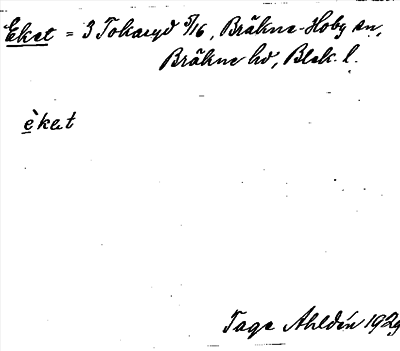 Eket = 3 Tokaryd 5/16, Bräkne-Hoby sn,
Bräkne hd, Blek. l.
èket
Tage Ahldén 1929